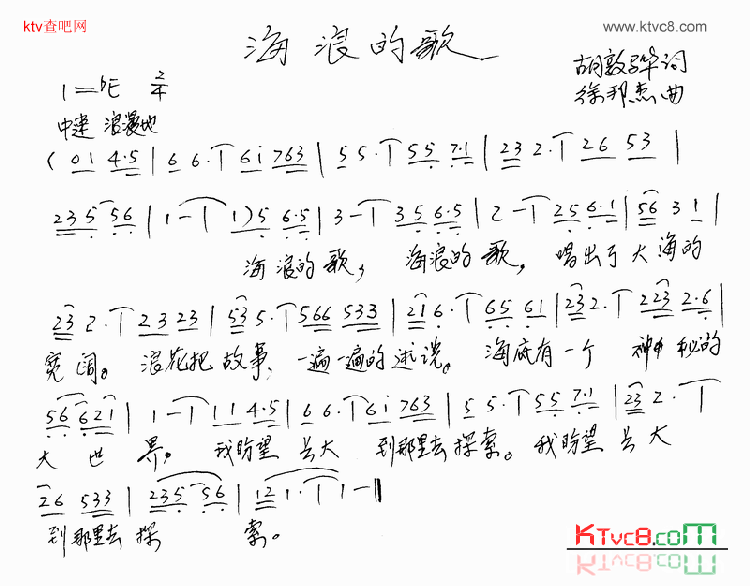 ktv查吧网
www.ktvc8.com
海浪的歌
胡敦骅词
1=bE 2/4
徐邦杰曲
中速 浪漫地
( 01 4·5 | 6 6· 6i 763 | 5 5· 55 7·1 | 23 2· 26 53 |
235 56 | 1 - 1) 5 6·5 | 3 - 35 6·5 | 2 - 25 6·1 | 56 3 1 |
海浪的歌, 海浪的歌, 唱出了大海的
23 2· 23 23 | 53 5· 566 533 | 21 6· 65 61 | 23 2· 223 2·6 |
宽阔。浪花把故事、一遍一遍的述说。海底有一个 神秘的
56 621 | 1 - 11 4·5 | 6 6· 6i 763 | 5 5· 55 7·1 | 23 2·
大世界。我盼望长大 到那里去探索。我盼望长大
26 533 | 235 56 | 12 1· 1 - ‖
到那里去探 索。
KTvc8.com